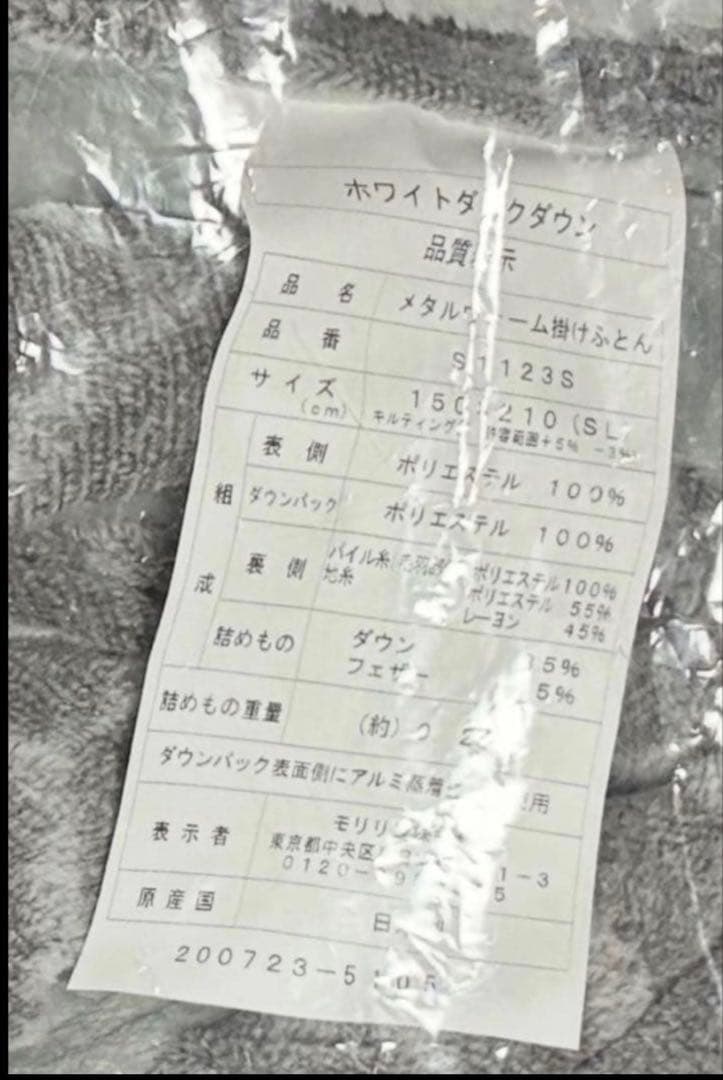 ホワイトダックダウン
品質表示
品名 メタルウォーム掛けふとん
品番 S1123S
サイズ 150×210(SL
(cm) キルティング 許容範囲+5% -3%
組成
表側 ポリエステル 100%
ダウンパック ポリエステル 100%
裏側 パイル糸 ポリエステル100%
地糸 ポリエステル 55%
レーヨン 45%
詰めもの ダウン 5%
フェザー 5%
詰めもの重量 (約)0
ダウンパック表面側にアルミ蒸着 使用
表示者 モリリン
東京都中央区 1-3
0120- 5
原産国 日
200723-5